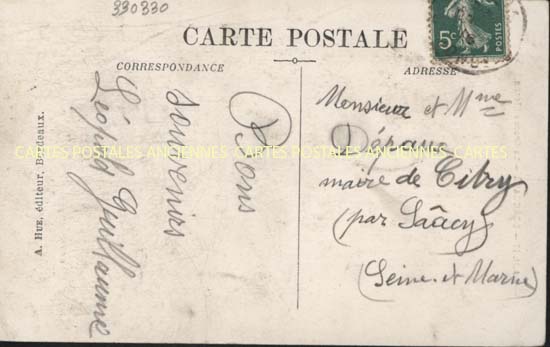 330330
CARTE POSTALE
CORRESPONDANCE
ADRESSE
5c
POSTES
Bons
souvenirs
Léopold Guillaume
Monsieur et Mme
Dépaux
maire de Citry
(par Saâcy)
(Seine-et-Marne)
A. Hue, éditeur, Bordeaux.
CARTES POSTALES ANCIENNES CARTES POSTALES ANCIENNES CARTES